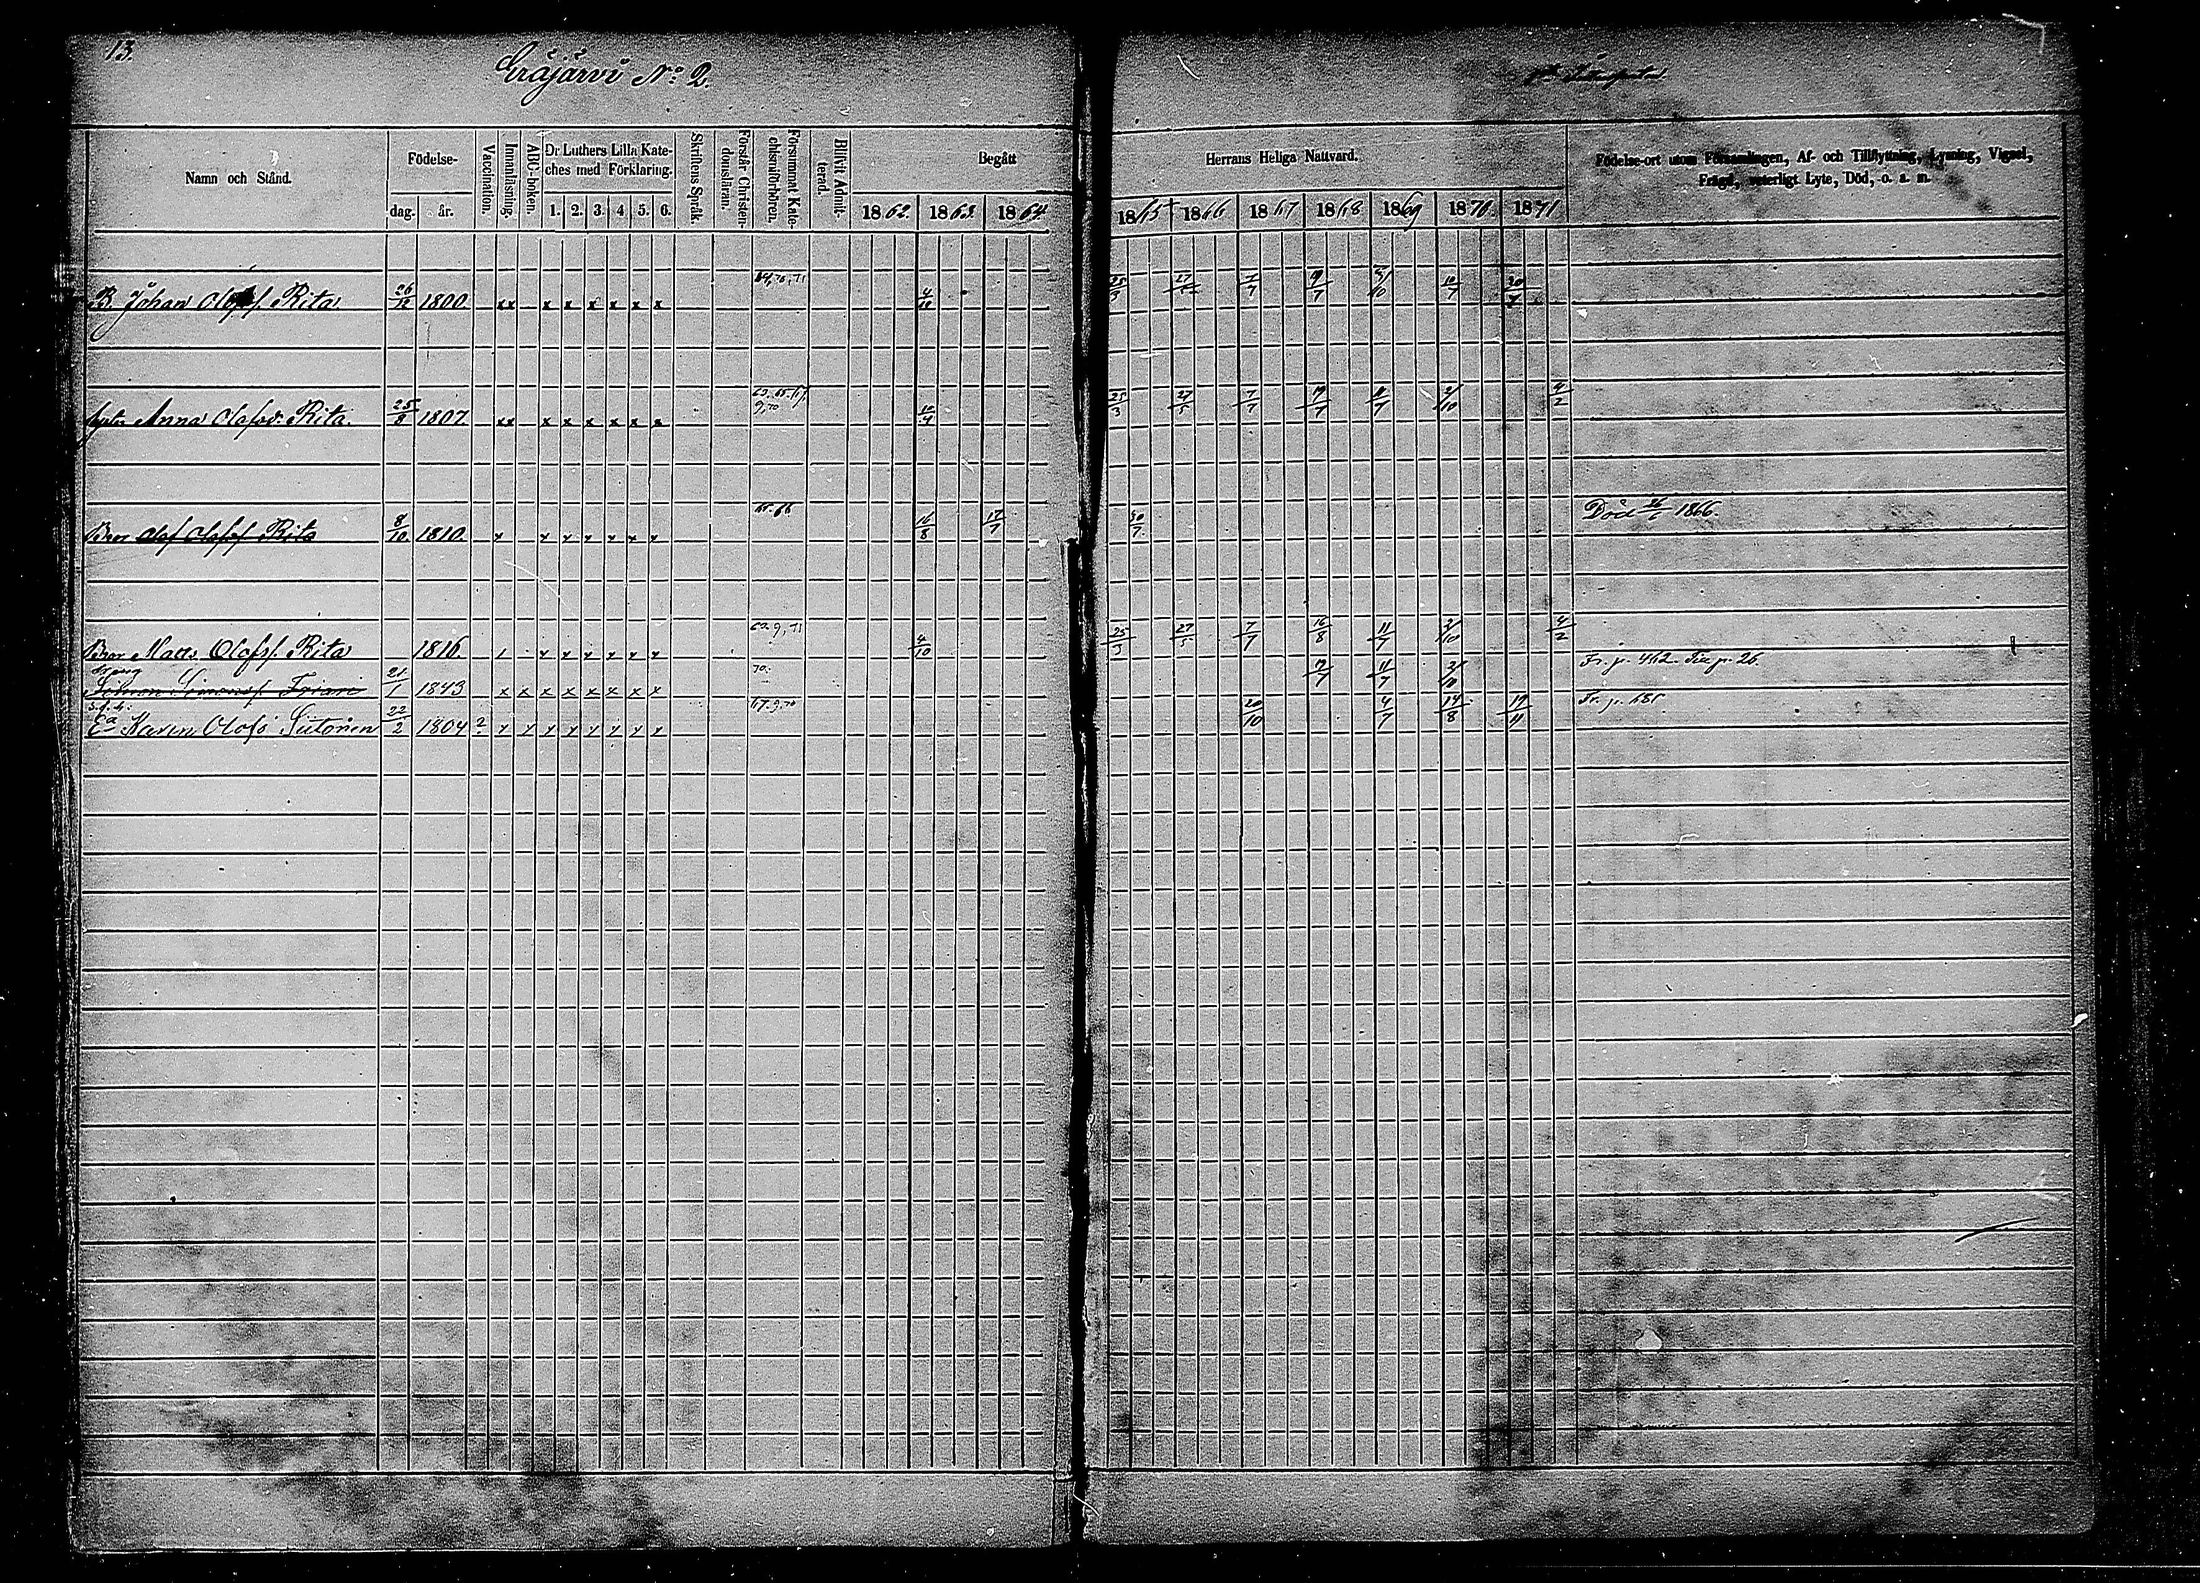 13.
Eräjärvi No 2.
Namn och Stånd.
Födelse-
dag. år.
Vaccination.
Innanläsning.
ABC-boken.
Dr Luthers Lilla Kate-
ches med Förklaring.
1. 2. 3. 4 5. 6.
Skriftens Språk.
Förstår Christen-
domsläran.
Försummat Kate-
chismiförhören.
Blifvit Admit-
terad.
Begått
1862. 1863. 1864
Herrans Heliga Nattvard.
1865 1866 1867 1868 1869 1870. 1871
Födelse-ort utom Församlingen, Af- och Tillflyttning, Lysning, Vigsel,
Frägd, veterligt Lyte, Död, o. s. m.
B. Johan Olofss. Rita. 26/12 1800 xx x x x x x x 4/10 25/3 27/5 7/7 19/7 3/10 10/7
Anna Olofsd. Rita. 25/8 1807. xx x x x x x x 25/3 27/5 7/7 19/7 11/7 2/10 4/2
65. 66
Bror Olof Olofss Rita 8/10 1810. x x x x x x x 16/8 17/7 30/7 Död 26/1 1866.
Bror Matts Olofss. Rita 1816. 4/10 25/3 27/5 7/7 16/8 11/7 2/10 4/2
Dräng
Simon Simonss. 21/1 1843 x x x x x x x x 70. 19/7 11/7 2/10 Fr. p. 462. Tee p. 26.
67. 9. 70
Ea Karin Olofsd 22/2 1804 ? x x x x x x x x 20/10 4/7 14/8 19/11 Fr. p.